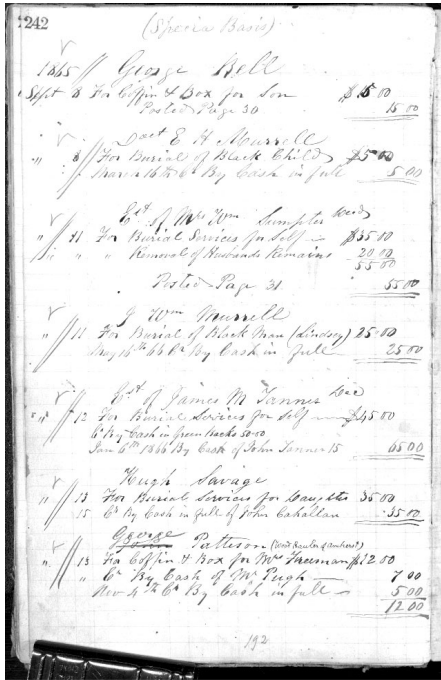 242
(Specia Basis)
1865 // George Bell
Sept 8 For Coffin & Box for Son $15 00
Posted Page 30 15 00
Doct E H Murrell
" 8 // For Burial of Black Child $5 00
March 16th Cr By Cash in full 5.00
Est of Mrs Wm Sumpter Decd
" // 11 For Burial Services for Self $35 00
" " " Removal of Husbands Remains 20 00
55 00
Posted Page 31 55 00
J Wm Murrell
" // 11 For Burial of Black Man (Lindsey) 25 00
May 16th 66 Cr By Cash in full 25 00
Est of James M Tanner Dec
" // 12 For Burial Services for Self $45 00
Cr By Cash in green backs 50 00
Jan 6th 1866 By Cash of John Tanner 15 65 00
Hugh Savage
" // 13 For Burial Services for Daughter 35 00
15 Cr By Cash in full of John Cahallan 35 00
George
Patteson
" // 13 For Coffin & Box for Mr Freeman $12 00
" Cr By Cash of Mr Pugh 7 00
Nov 4th Cr By Cash in full 5 00
12 00
192